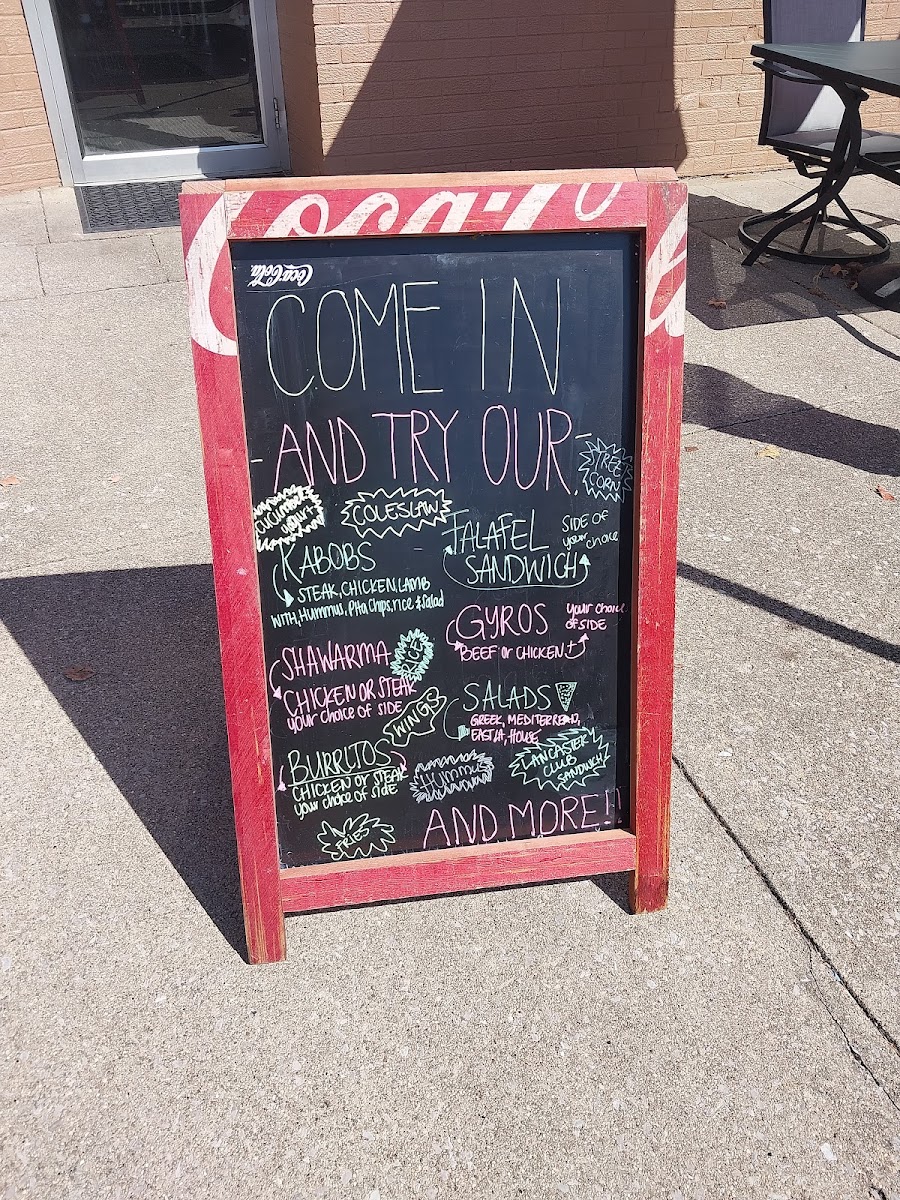 Coca-Cola
Coca-Cola
COME IN
-AND TRY OUR-
STREET
CORN
cucumber
yogurt
COLESLAW
KABOBS
STEAK, CHICKEN, LAMB
WITH, Hummus, Pita Chips, rice & Salad
FALAFEL
SANDWICH
SIDE OF
your choice
GYROS
BEEF or CHICKEN
your choice
of SIDE
SHAWARMA
RICE
CHICKEN OR STEAK
your choice of SIDE
WINGS
SALADS
GREEK, MEDITERREAN,
EAST LA, HOUSE
BURRITOS
CHICKEN or STEAK
your choice of Side
Hummus
LANCASTER
CLUB
SANDWICH
FRIES
AND MORE!!